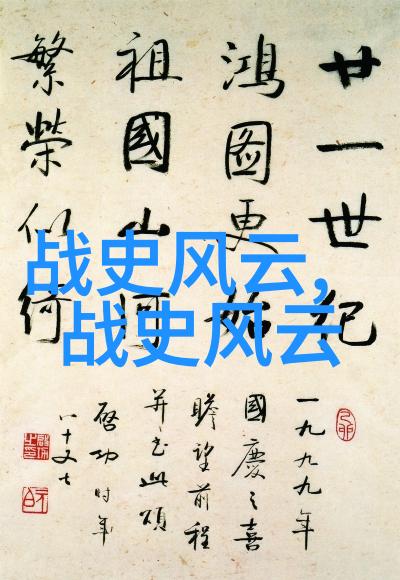 廿一世紀
鴻圖更始
祖國山河
繁榮似綺
一九九九年
國慶之喜
瞻望前程
并書此頌
啓功時年
八十又七
战史风云,
战史风云